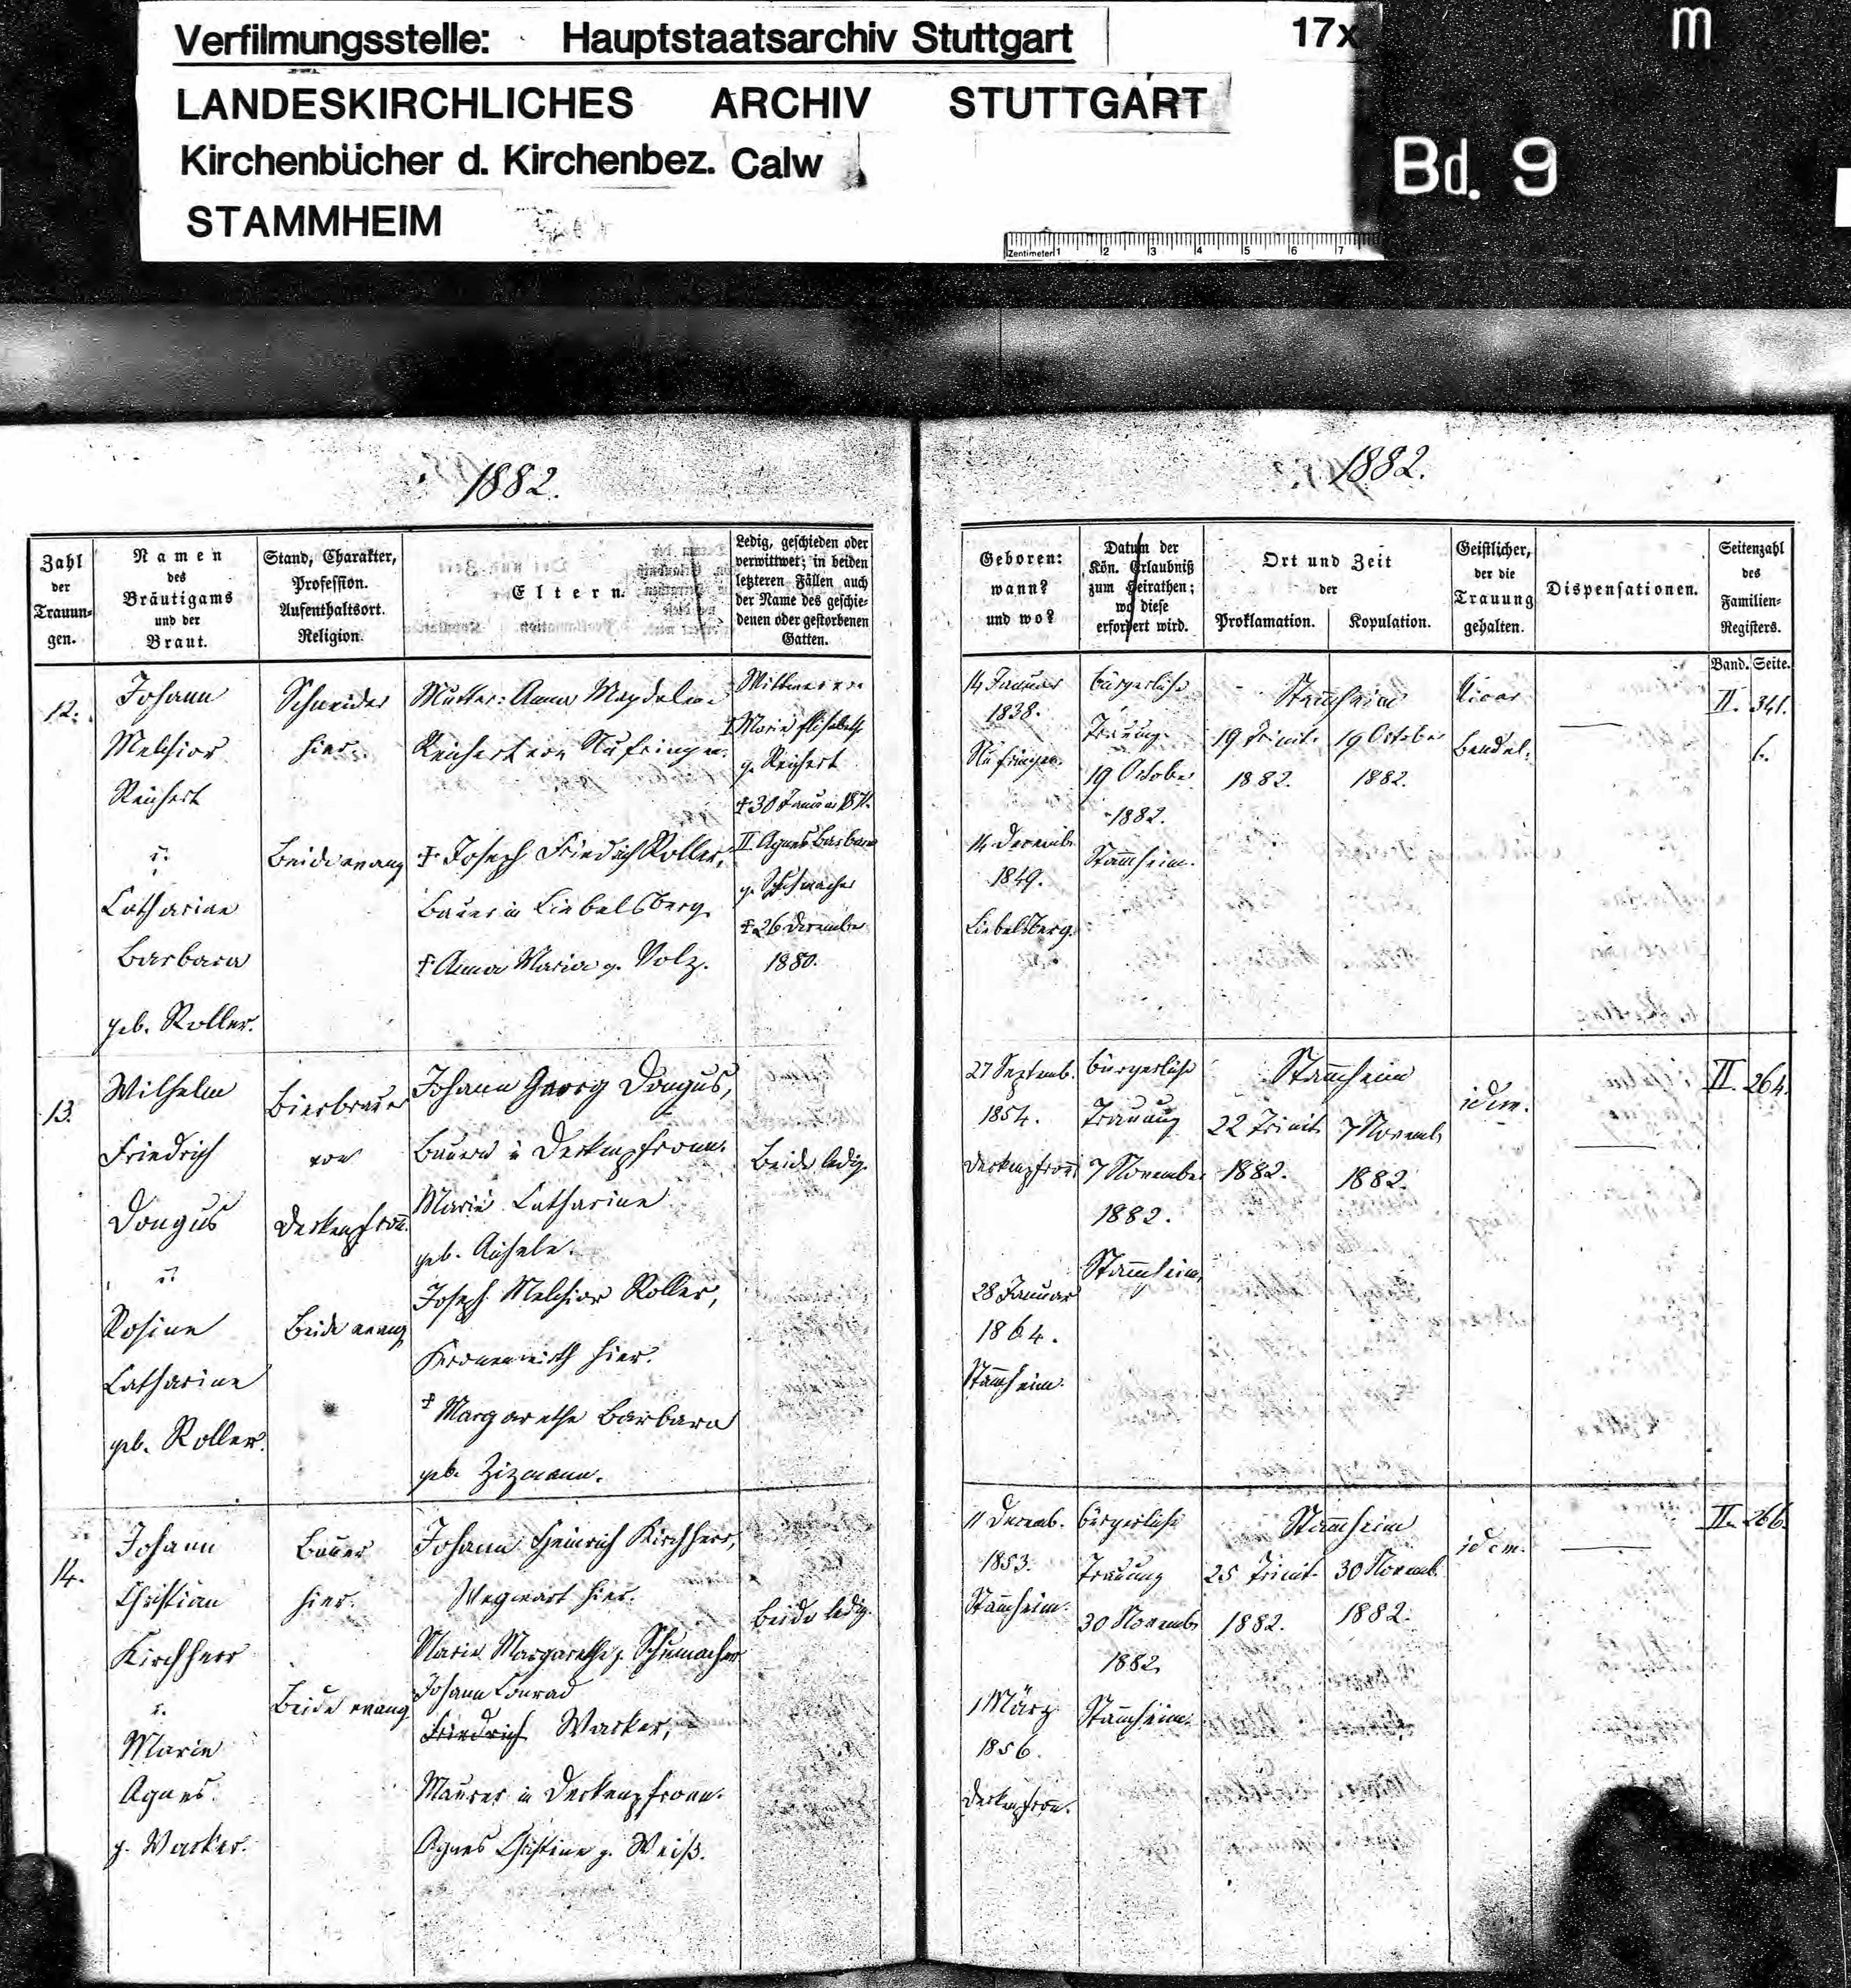 Verfilmungsstelle: Hauptstaatsarchiv Stuttgart
17x
m
LANDESKIRCHLICHES ARCHIV STUTTGART
Kirchenbücher d. Kirchenbez. Calw
Bd. 9
STAMMHEIM
Zentimeter 1 2 3 4 5 6 7
1882.
Zahl der Trauungen.
Namen des Bräutigams und der Braut.
Stand, Charakter, Profession. Aufenthaltsort. Religion.
Eltern.
Ledig, geschieden oder verwittwet; in beiden letzteren Fällen auch der Name des geschiedenen oder gestorbenen Gatten.
12.
Johann
Melchior
Reichert
u.
Catharine
Barbara
geb. Roller.
Schneider
hier.
Beide evang
Mutter: Anna Magdalena
Reichert von Nufringen.
† Joseph Friedrich Roller,
Bauer in Liebelsberg.
† Anna Maria g. Volz.
Wittwer von
I Marie Elisabeth
g. Reichert
† 30 Januar 187
II Agnes Barbara
g. Schumacher
† 26 December
1880.
13.
Wilhelm
Friedrich
Dongus
u.
Rosine
Catharine
geb. Roller.
Bierbrauer
von
Deckenpfron̄.
Beide evang
Johann Georg Dongus,
Bauer in Deckenpfronn.
Marie Catharine
geb. Aichele.
Joseph Melchior Roller,
Kronenwirth hier.
† Margarethe Barbara
geb. Zizmann.
Beide ledig.
14.
Johann
Christian
Kirchherr
u.
Marie
Agnes
g. Wacker.
Bauer
hier.
Beide evang
Johann Heinrich Kirchherr,
Wegwart hier.
Marie Margarethe g. Schumacher
Johann Conrad
Friedrich Wacker,
Maurer in Deckenpfronn.
Agnes Christine g. Weiß.
Beide ledig.
1882.
Geboren: wann? und wo?
Datum der Kön. Erlaubniß zum Heirathen; wo diese erfordert wird.
Ort und Zeit der
Proklamation.
Kopulation.
Geistlicher, der die Trauung gehalten.
Dispensationen.
Seitenzahl des Familien-Registers.
Band. Seite.
14 Januar
1838.
Nufringen.
14 Decemb.
1849.
Liebelsberg.
bürgerliche
Trauung
19 October
1882.
Stam̄heim.
Stam̄heim
19 Trinit.
1882.
19 October
1882.
Vicar
Bendel.
II. 341.
b.
27 Septemb.
1854.
Deckenpfron̄
28 Januar
1864.
Stam̄heim.
bürgerliche
Trauung
7 November
1882.
Stam̄heim.
Stam̄heim
22 Trinit.
1882.
7 Novemb.
1882.
idem.
II. 264.
11 Decemb.
1853.
Stam̄heim.
1 März
1856.
Deckenpfron̄.
bürgerliche
Trauung
30 Novemb.
1882.
Stam̄heim.
Stam̄heim
25 Trinit.
1882.
30 Novemb.
1882.
idem.
II. 266.